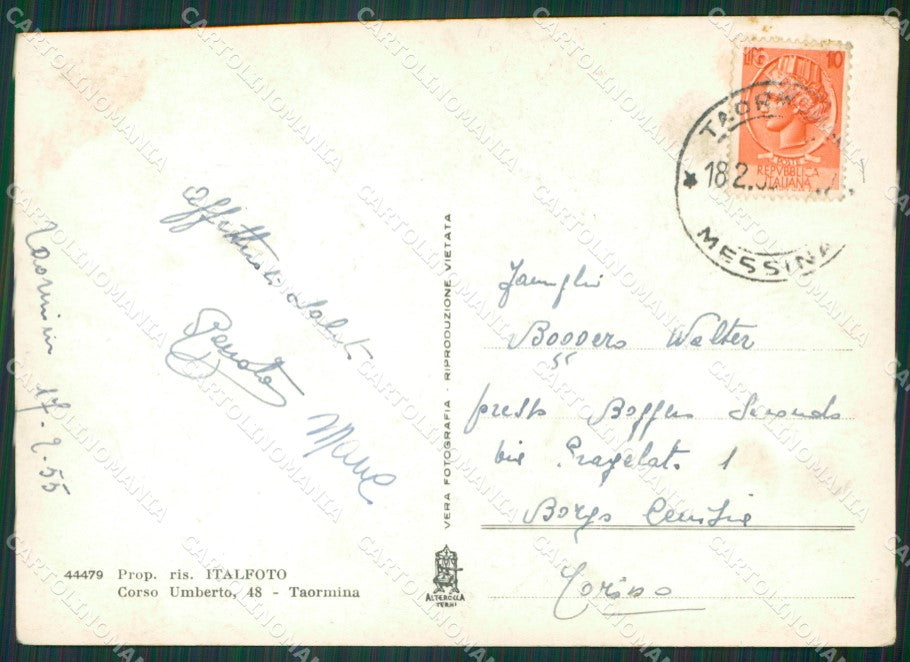 Taormina 17-2-55
affettuosi saluti
Renata
44479 Prop. ris. ITALFOTO
Corso Umberto, 48 - Taormina
VERA FOTOGRAFIA RIPRODUZIONE VIETATA
ALTEROCCA
TERNI
L. 10
POSTE
REPVBBLICA
ITALIANA
TAORMINA
18.2.55
MESSINA
Famiglia
Walter
presso Secondo
via Pragelato 1
Borgo
Torino
CARTOLINOMANIA